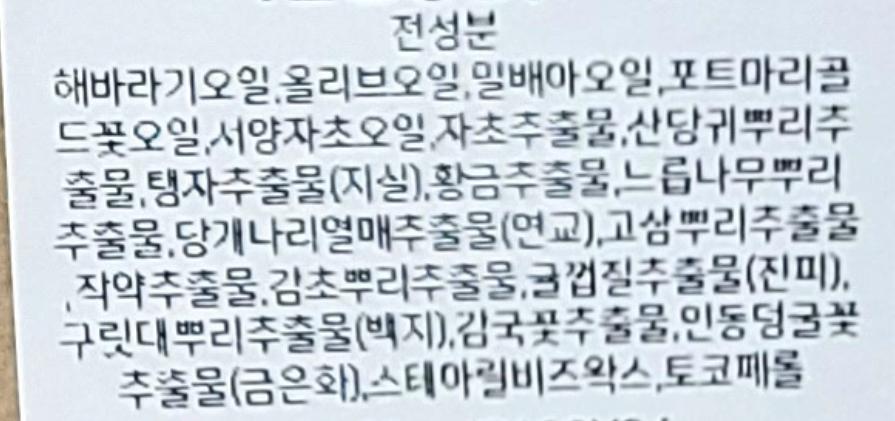 전성분
해바라기오일,올리브오일,밀배아오일,포트마리골
드꽃오일,서양자초오일,자초추출물,산당귀뿌리추
출물,탱자추출물(지실),황금추출물,느릅나무뿌리
추출물,당개나리열매추출물(연교),고삼뿌리추출물
,작약추출물,감초뿌리추출물,귤껍질추출물(진피),
구릿대뿌리추출물(백지),감국꽃추출물,인동덩굴꽃
추출물(금은화),스테아릴비즈왁스,토코페롤